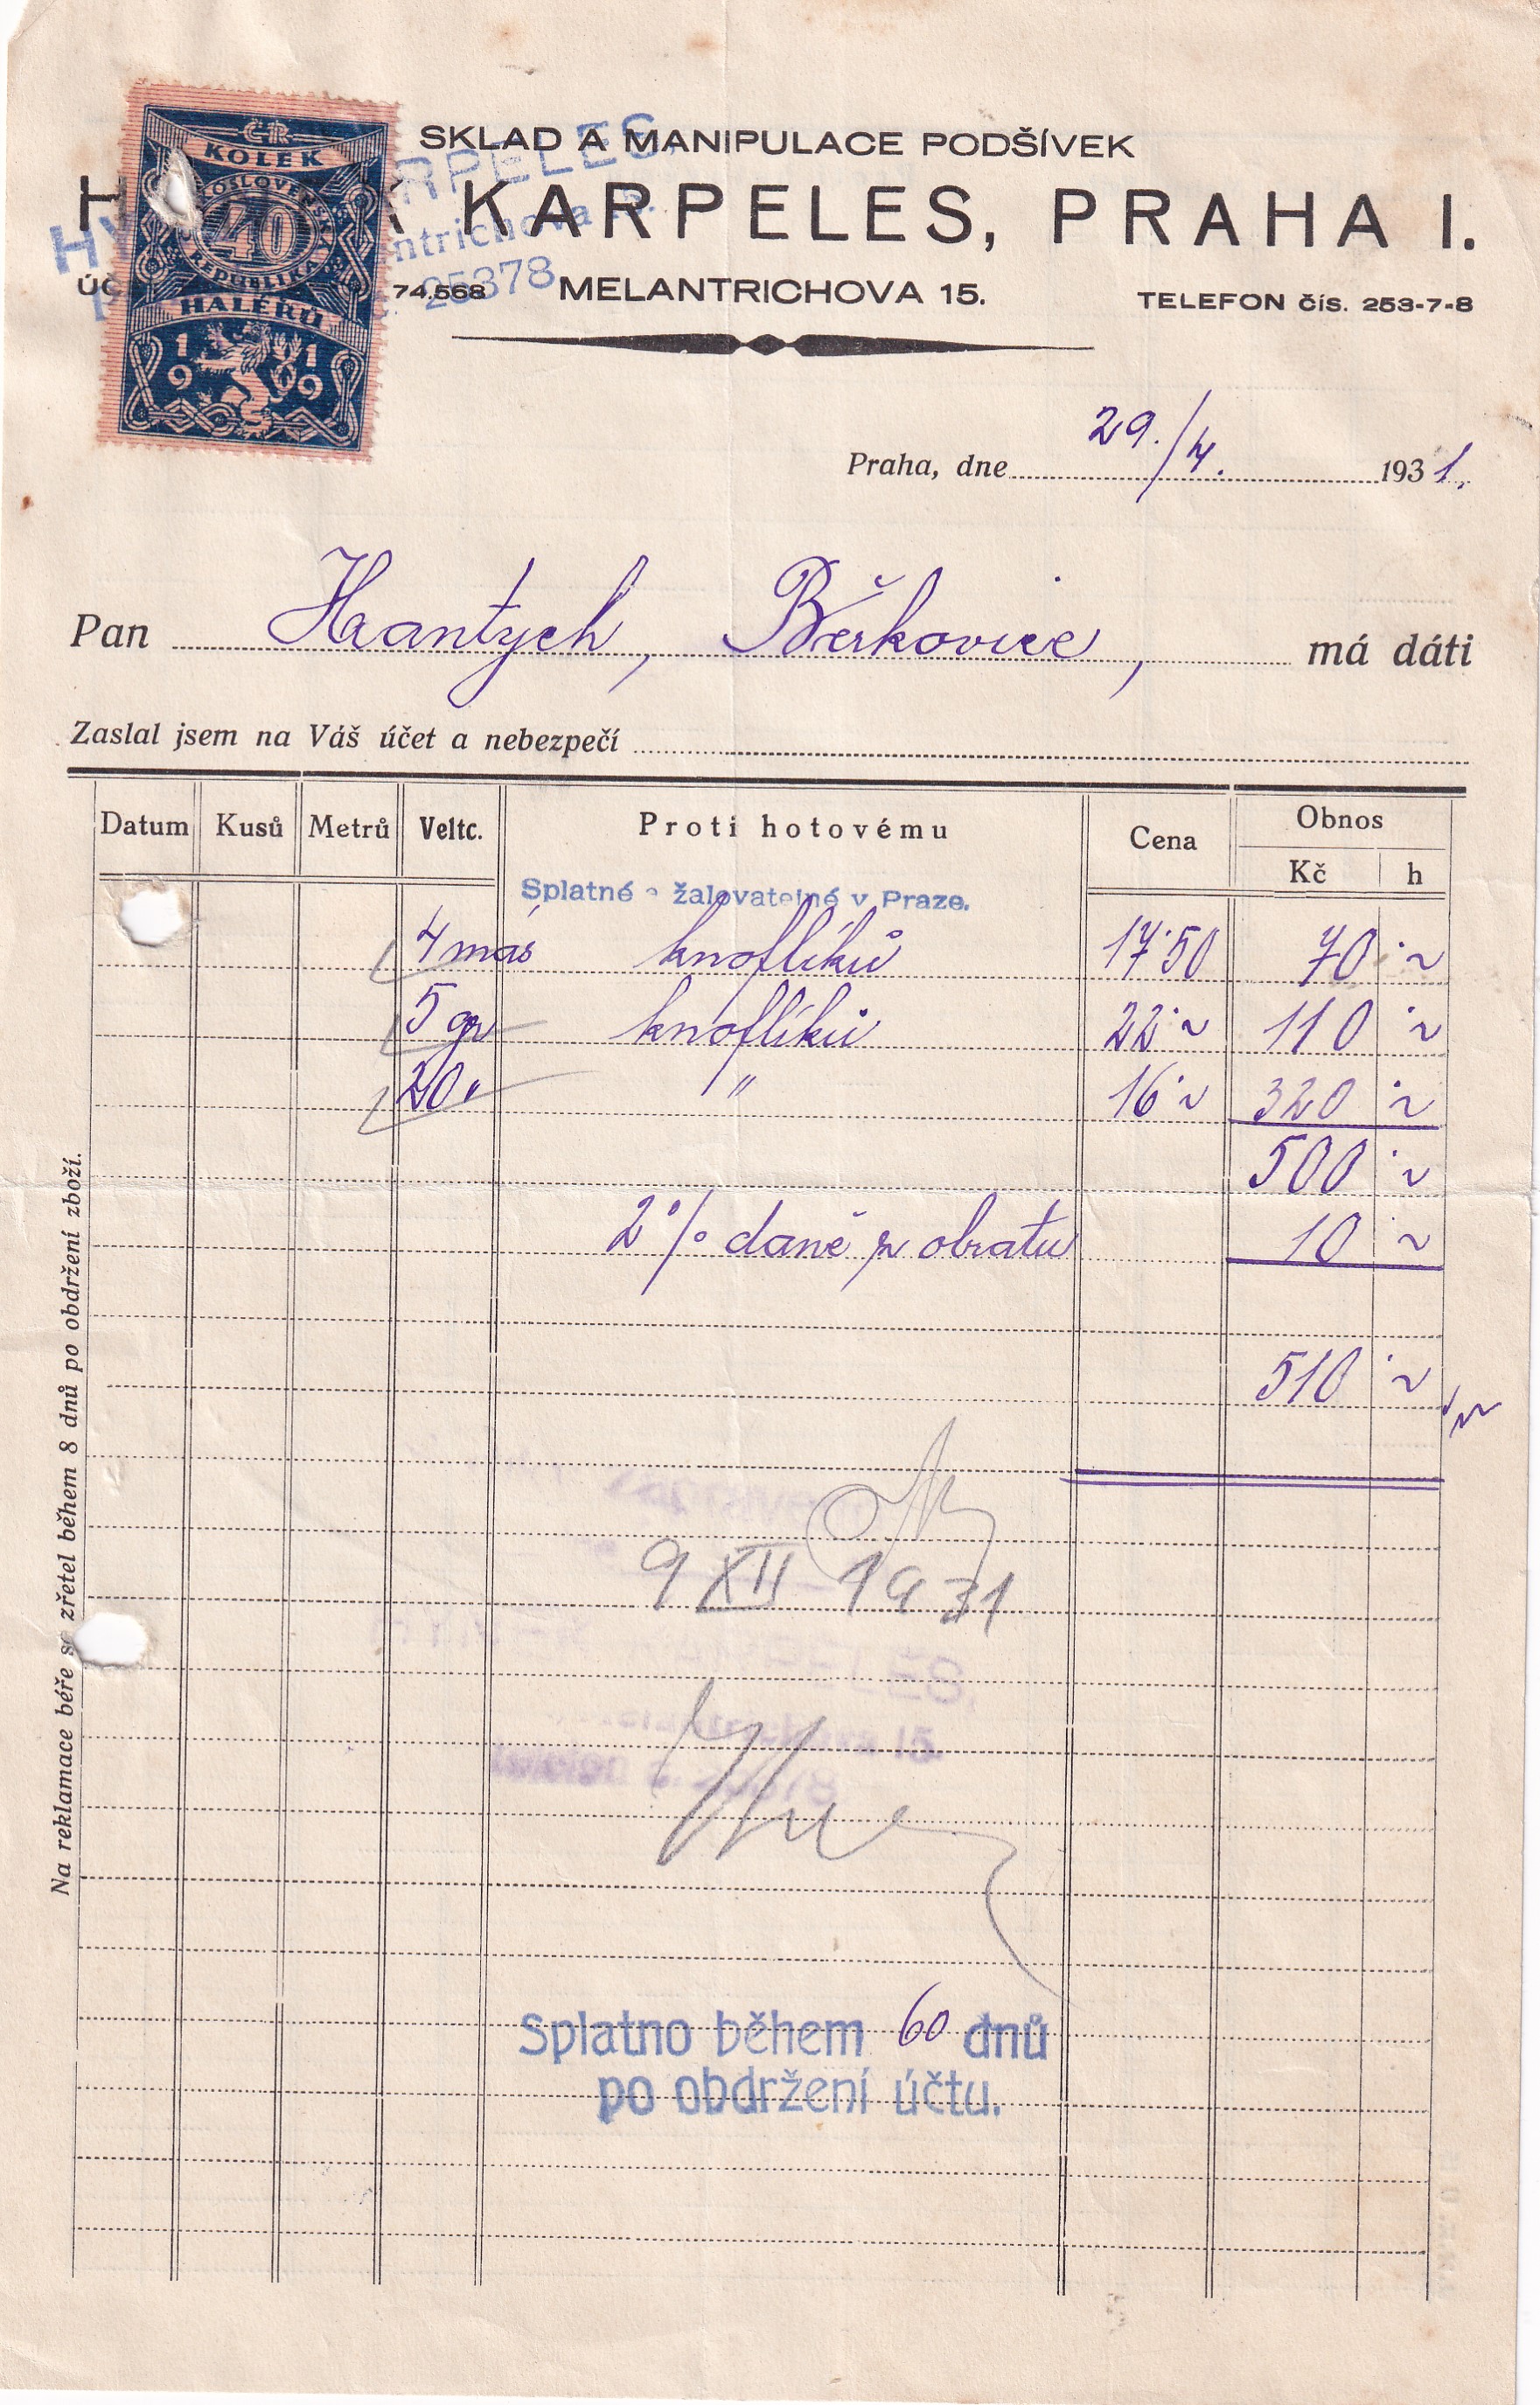 SKLAD A MANIPULACE PODŠÍVEK
KARPELES, PRAHA I.
74.568 MELANTRICHOVA 15. TELEFON čís. 253-7-8
25378
ČR
KOLEK
40
REPUBLIKA
HALÉŘŮ
1919
Praha, dne 29./4. 1931.
Pan Hrantych, Běrkovice, má dáti
Zaslal jsem na Váš účet a nebezpečí
Datum Kusů Metrů Veltc. Proti hotovému Cena Obnos
Kč h
Splatné a žalovatelné v Praze.
4 mas knoflíků 17·50 70 ·~
5 gr knoflíků 22·~ 110 ·~
20 " " 16·~ 320 ·~
500 ·~
2% daně z obratu 10 ·~
510 ·~
9 XII 1931
Splatno během 60 dnů
po obdržení účtu.
Na reklamace béře se zřetel během 8 dnů po obdržení zboží.